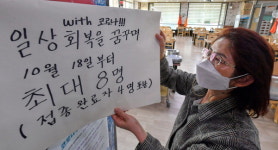 with 코로나!!!
일상회복을 꿈꾸며
10월 18일부터
최대 8명
(접종완료자 4명 포함)